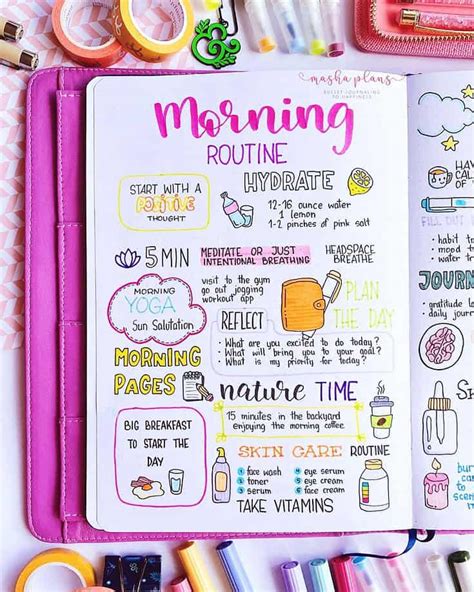 masha plans
BULLET JOURNALING
TO HAPPINESS
Morning
ROUTINE
START WITH A
POSITIVE
THOUGHT
HYDRATE
12-16 ounce water
1 lemon
1-2 pinches of pink salt
5 MIN
MEDITATE OR JUST
INTENTIONAL BREATHING
HEADSPACE
BREATHE
MORNING
YOGA
Sun Salutation
visit to the gym
go out jogging
workout app
PLAN
THE DAY
REFLECT
• What are you excited to do today?
• What will bring you to your goal?
• What is my priority for today?
MORNING
PAGES
nature TIME
15 minutes in the backyard
enjoying the morning coffee
BIG BREAKFAST
TO START THE
DAY
SKIN CARE ROUTINE
1 face wash
2 toner
3 serum
4 eye serum
5 eye cream
6 face cream
TAKE VITAMINS
CAL
OF
FILL OUT
• habit
• mood
• water
JOURN
• gratitude
• daily jour